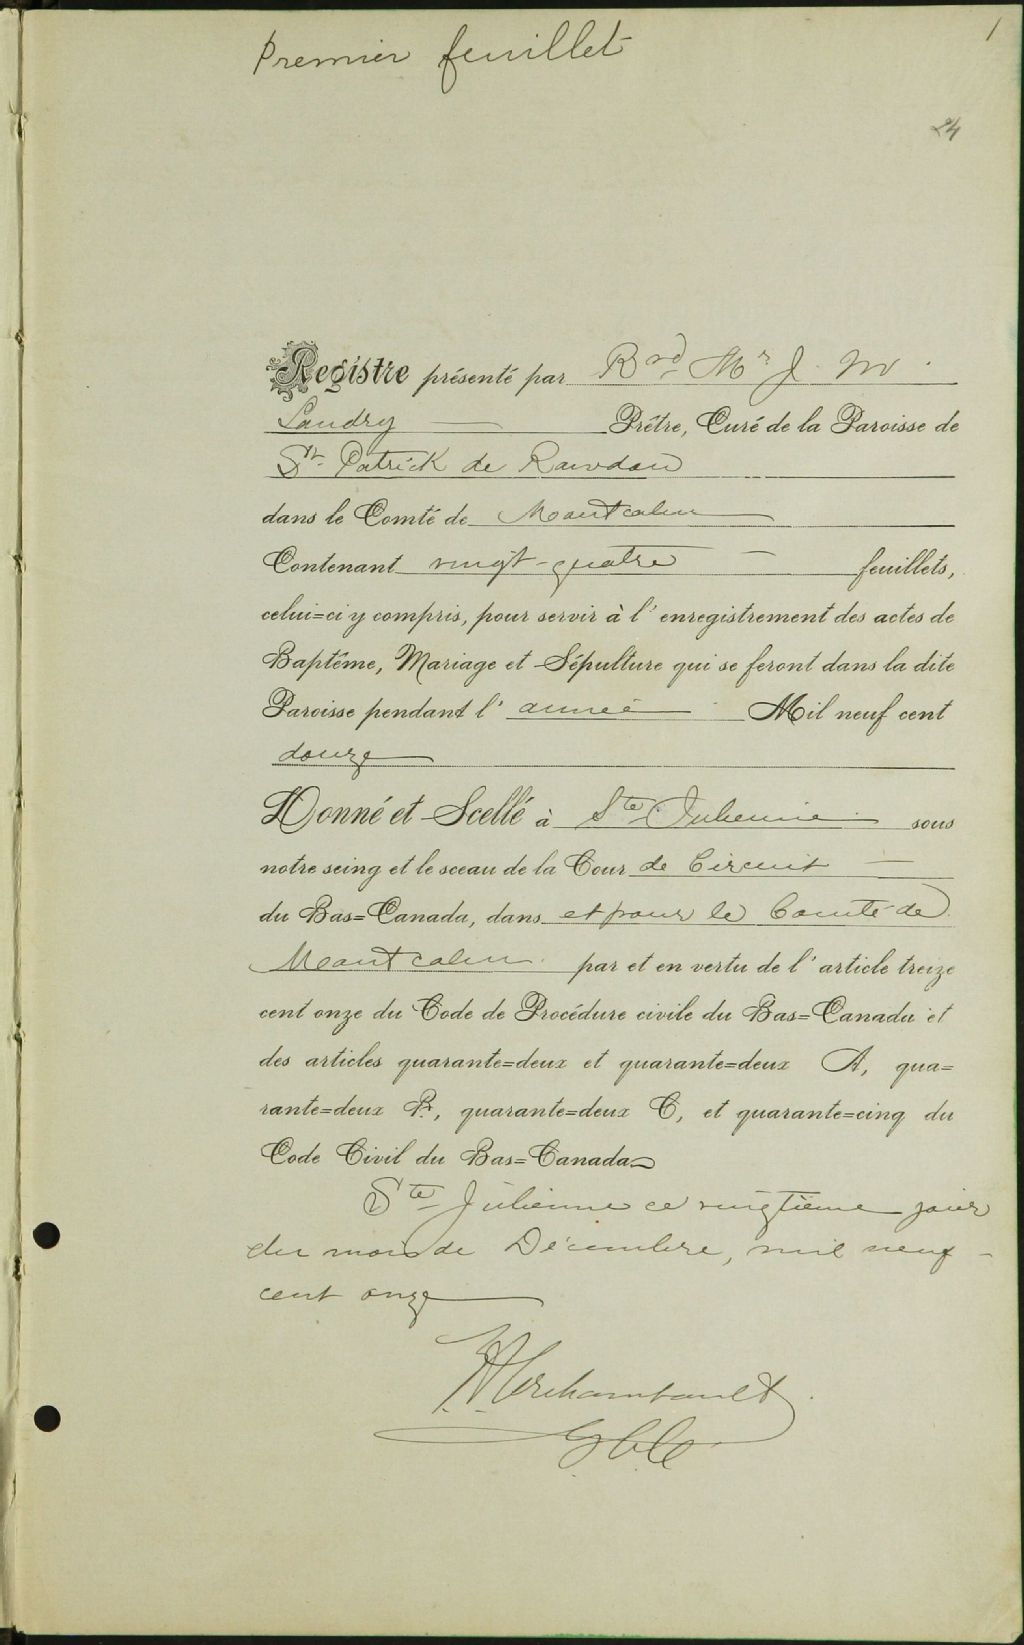 1
Premier feuillet
24
Registre présenté par Rvd Mr J. M.
Landry Prêtre, Curé de la Paroisse de
St Patrick de Rawdon
dans le Comté de Montcalm
Contenant vingt-quatre feuillets,
celui=ci y compris, pour servir à l'enregistrement des actes de
Baptême, Mariage et Sépulture qui se feront dans la dite
Paroisse pendant l'année Mil neuf cent
douze
Donné et Scellé à Ste Julienne sous
notre seing et le sceau de la Cour de Circuit
du Bas=Canada, dans et pour le Comté de
Montcalm par et en vertu de l'article treize
cent onze du Code de Procédure civile du Bas=Canada et
des articles quarante=deux et quarante=deux A, qua=
rante=deux B, quarante=deux C, et quarante=cinq du
Code Civil du Bas=Canada
Ste Julienne ce vingtième jour
du mois de Décembre, mil neuf -
cent onze
Archambault